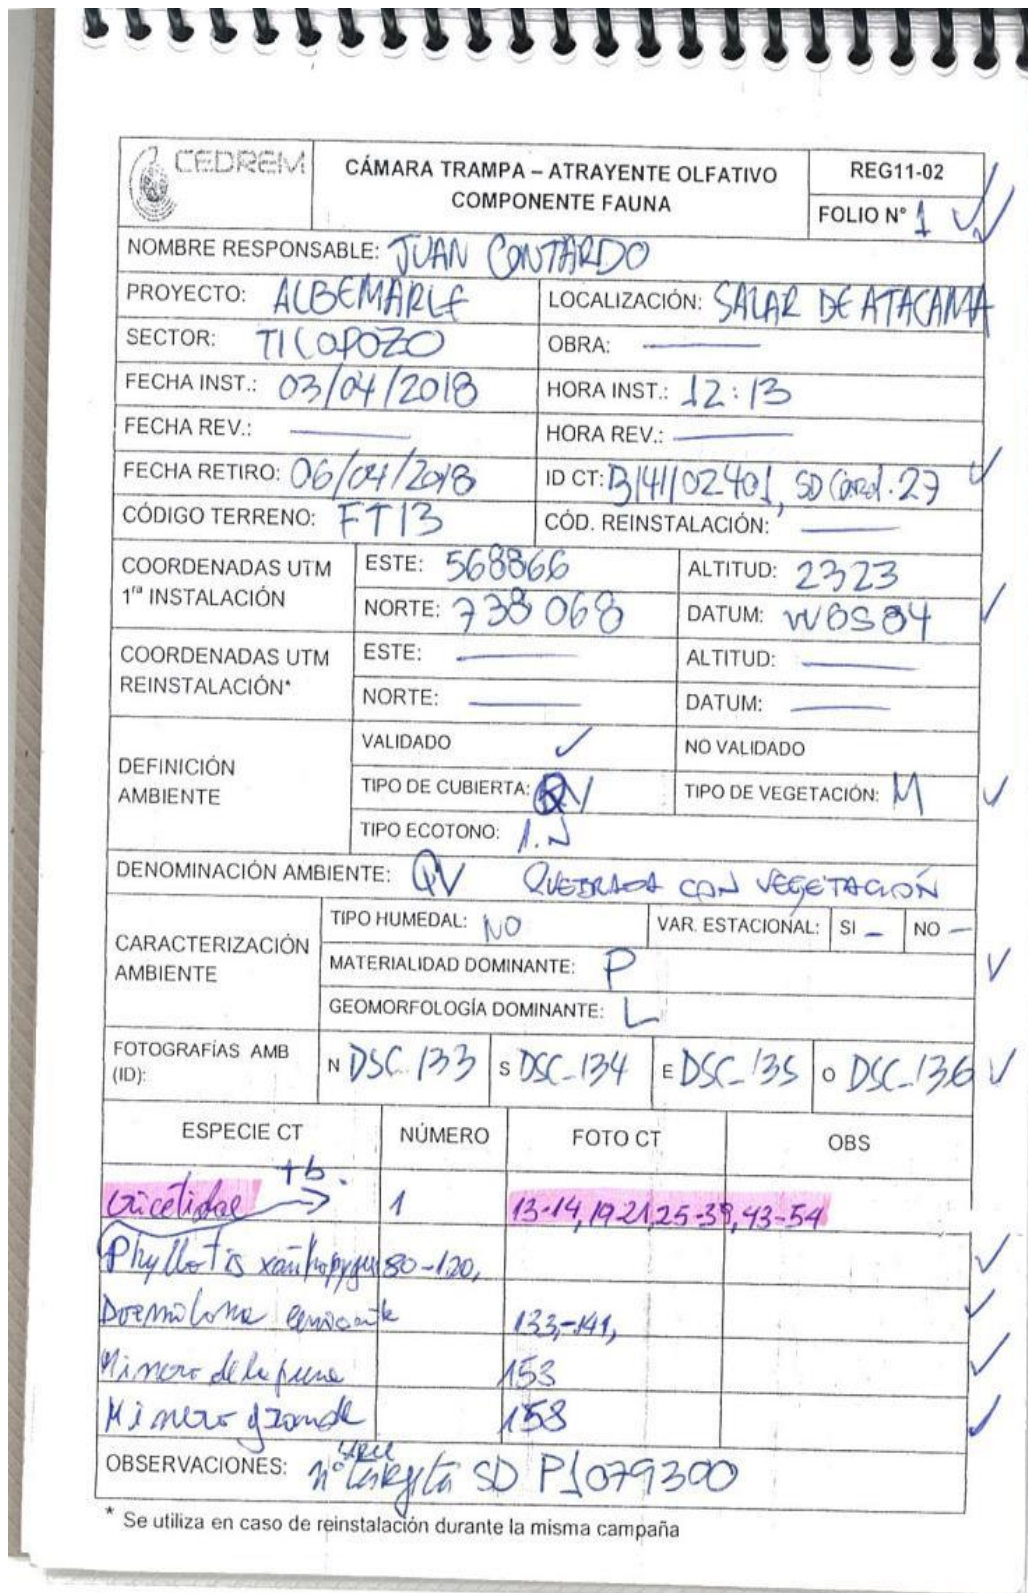 CEDREM
CÁMARA TRAMPA – ATRAYENTE OLFATIVO
COMPONENTE FAUNA
REG11-02
FOLIO N° 1
NOMBRE RESPONSABLE: JUAN CONTARDO
PROYECTO: ALBEMARLE LOCALIZACIÓN: SALAR DE ATACAMA
SECTOR: TILOPOZO OBRA: ———
FECHA INST.: 03/04/2018 HORA INST.: 12:13
FECHA REV.: ——— HORA REV.: ———
FECHA RETIRO: 06/04/2018 ID CT: B141102401, SD Card. 27
CÓDIGO TERRENO: FT13 CÓD. REINSTALACIÓN: ———
COORDENADAS UTM
1ra INSTALACIÓN
ESTE: 568866 ALTITUD: 2323
NORTE: 738068 DATUM: WGS84
COORDENADAS UTM
REINSTALACIÓN*
ESTE: ——— ALTITUD: ———
NORTE: ——— DATUM: ———
DEFINICIÓN
AMBIENTE
VALIDADO ✓ NO VALIDADO
TIPO DE CUBIERTA: QV TIPO DE VEGETACIÓN: M
TIPO ECOTONO: 1.N
DENOMINACIÓN AMBIENTE: QV QUEBRADA CON VEGETACIÓN
CARACTERIZACIÓN
AMBIENTE
TIPO HUMEDAL: NO VAR. ESTACIONAL: SI – NO –
MATERIALIDAD DOMINANTE: P
GEOMORFOLOGÍA DOMINANTE: L
FOTOGRAFÍAS AMB
(ID):
N DSC_133 S DSC_134 E DSC_135 O DSC_136
ESPECIE CT NÚMERO FOTO CT OBS
tb.
Cricetidae 1 13-14, 19-21, 25-39, 43-54
Phyllotis xanthopygus 80-120,
Dormilona 133,-141,
Minero de la puna 153
Minero grande 158
OBSERVACIONES: n° tarjeta SD P1079300
* Se utiliza en caso de reinstalación durante la misma campaña